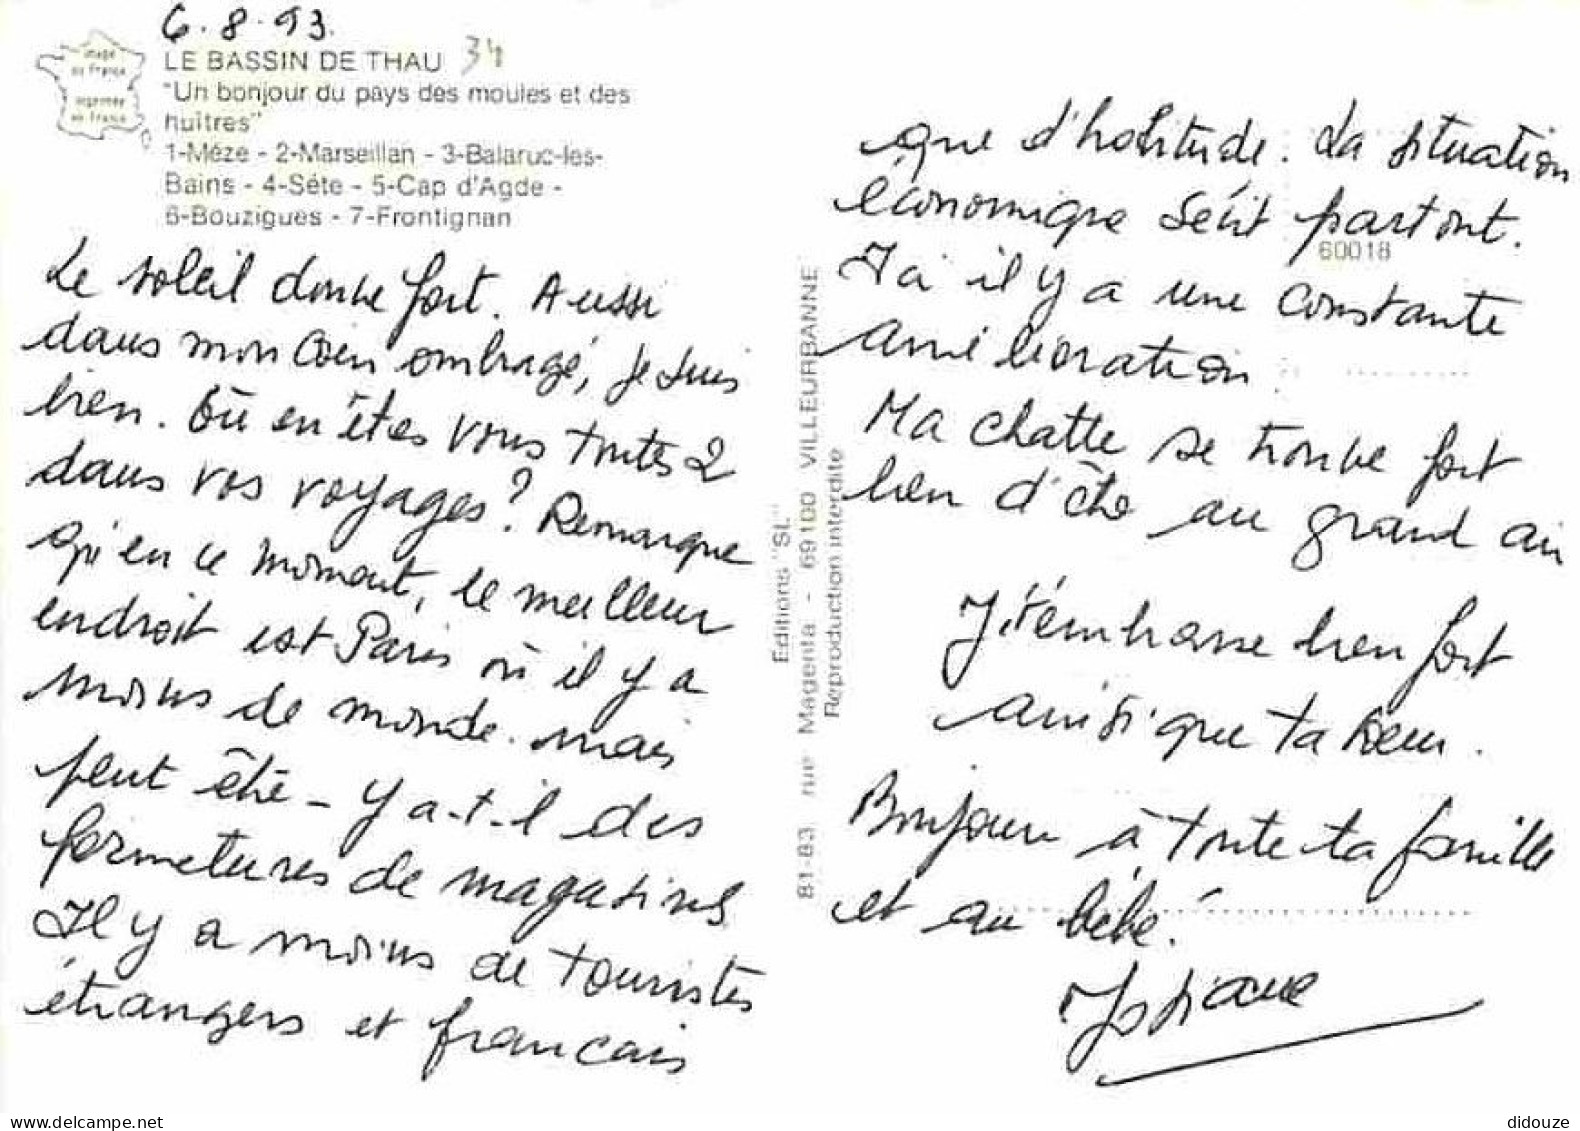 6.8.93.
image de France
imprimée en France
LE BASSIN DE THAU 34
"Un bonjour du pays des moules et des
huîtres"
1-Mèze - 2-Marseillan - 3-Balaruc-les-
Bains - 4-Sète - 5-Cap d'Agde -
6-Bouzigues - 7-Frontignan
Le soleil donne fort. Aussi
dans mon coin ombragé, je suis
bien. Où en êtes vous toutes 2
dans vos voyages? Remarque
qu'en ce moment, le meilleur
endroit est Paris où il y a
moins de monde. mais
peut être - y a-t-il des
fermetures de magasins
Il y a moins de touristes
étrangers et francais
Editions "SL"
81-83, rue Magenta - 69100 VILLEURBANNE
Reproduction interdite
que d'habitude. La situation
économique sévit partout.
60018
J'ai il y a une constante
amélioration.
Ma chatte se trouve fort
bien d'être au grand air
J't'embrasse bien fort
ainsi que ta soeur.
Bonjour à toute ta famille
et au bébé!
didouze